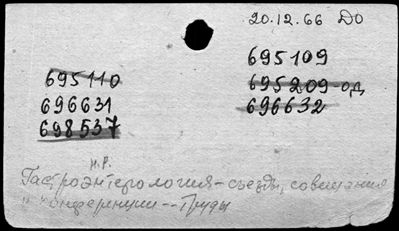 20.12.66 ДО
695109
695110
695209-од.
696631
696632
698537
н.р.
Гастроэнтерология-съезды, совещания
и конференции--Труды